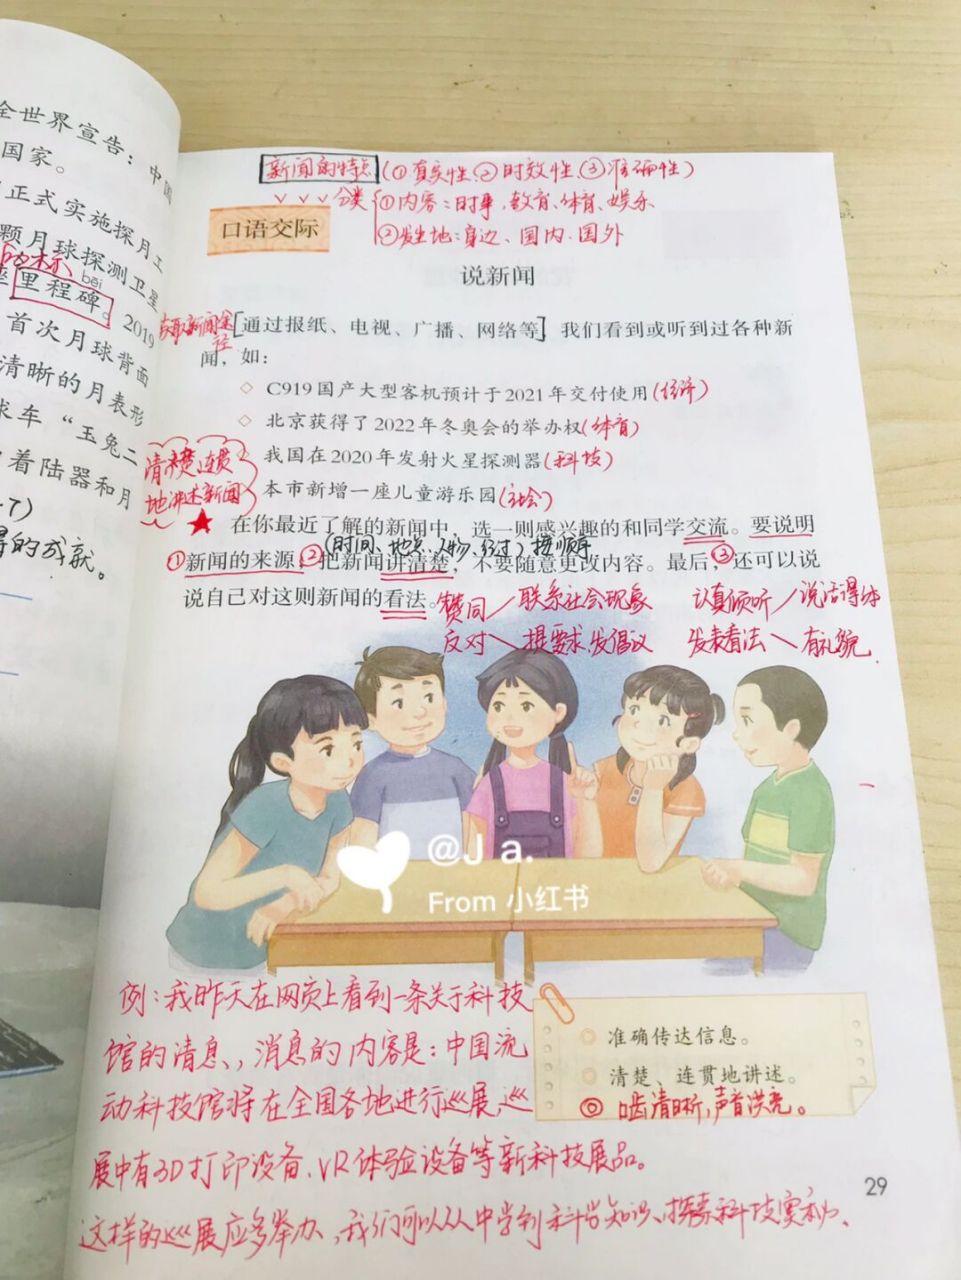 全世界宣告：中国
国家。
正式实施探月工
颗月球探测卫星
bēi
里程碑。2019
首次月球背面
清晰的月表形
球车“玉兔二
着陆器和月
的成就。
新闻的特点（①真实性②时效性③准确性）
分类 ①内容：时事、教育、体育、娱乐
②发生地：身边、国内、国外
口语交际
说新闻
获取新闻途径
通过报纸、电视、广播、网络等，我们看到或听到过各种新
闻，如：
◇ C919国产大型客机预计于2021年交付使用(经济)
◇ 北京获得了2022年冬奥会的举办权(体育)
我国在2020年发射火星探测器(科技)
本市新增一座儿童游乐园(社会)
清楚、连贯
地讲述新闻
★ 在你最近了解的新闻中，选一则感兴趣的和同学交流。要说明
(时间、地点、人物、经过)按顺序
①新闻的来源，②把新闻讲清楚，不要随意更改内容。最后，③还可以说
说自己对这则新闻的看法。
赞同／联系社会现象 认真倾听／说话得体
反对＼提要求、发倡议 发表看法＼有礼貌.
@J a.
From 小红书
例：我昨天在网页上看到一条关于科技
馆的消息，消息的内容是：中国流
动科技馆将在全国各地进行巡展，巡
展中有3D打印设备、VR体验设备等新科技展品。
这样的巡展应多举办，我们可以从中学到科学知识、探索科技奥秘、
◎ 准确传达信息。
◎ 清楚、连贯地讲述。
◎ 口齿清晰，声音洪亮。
29